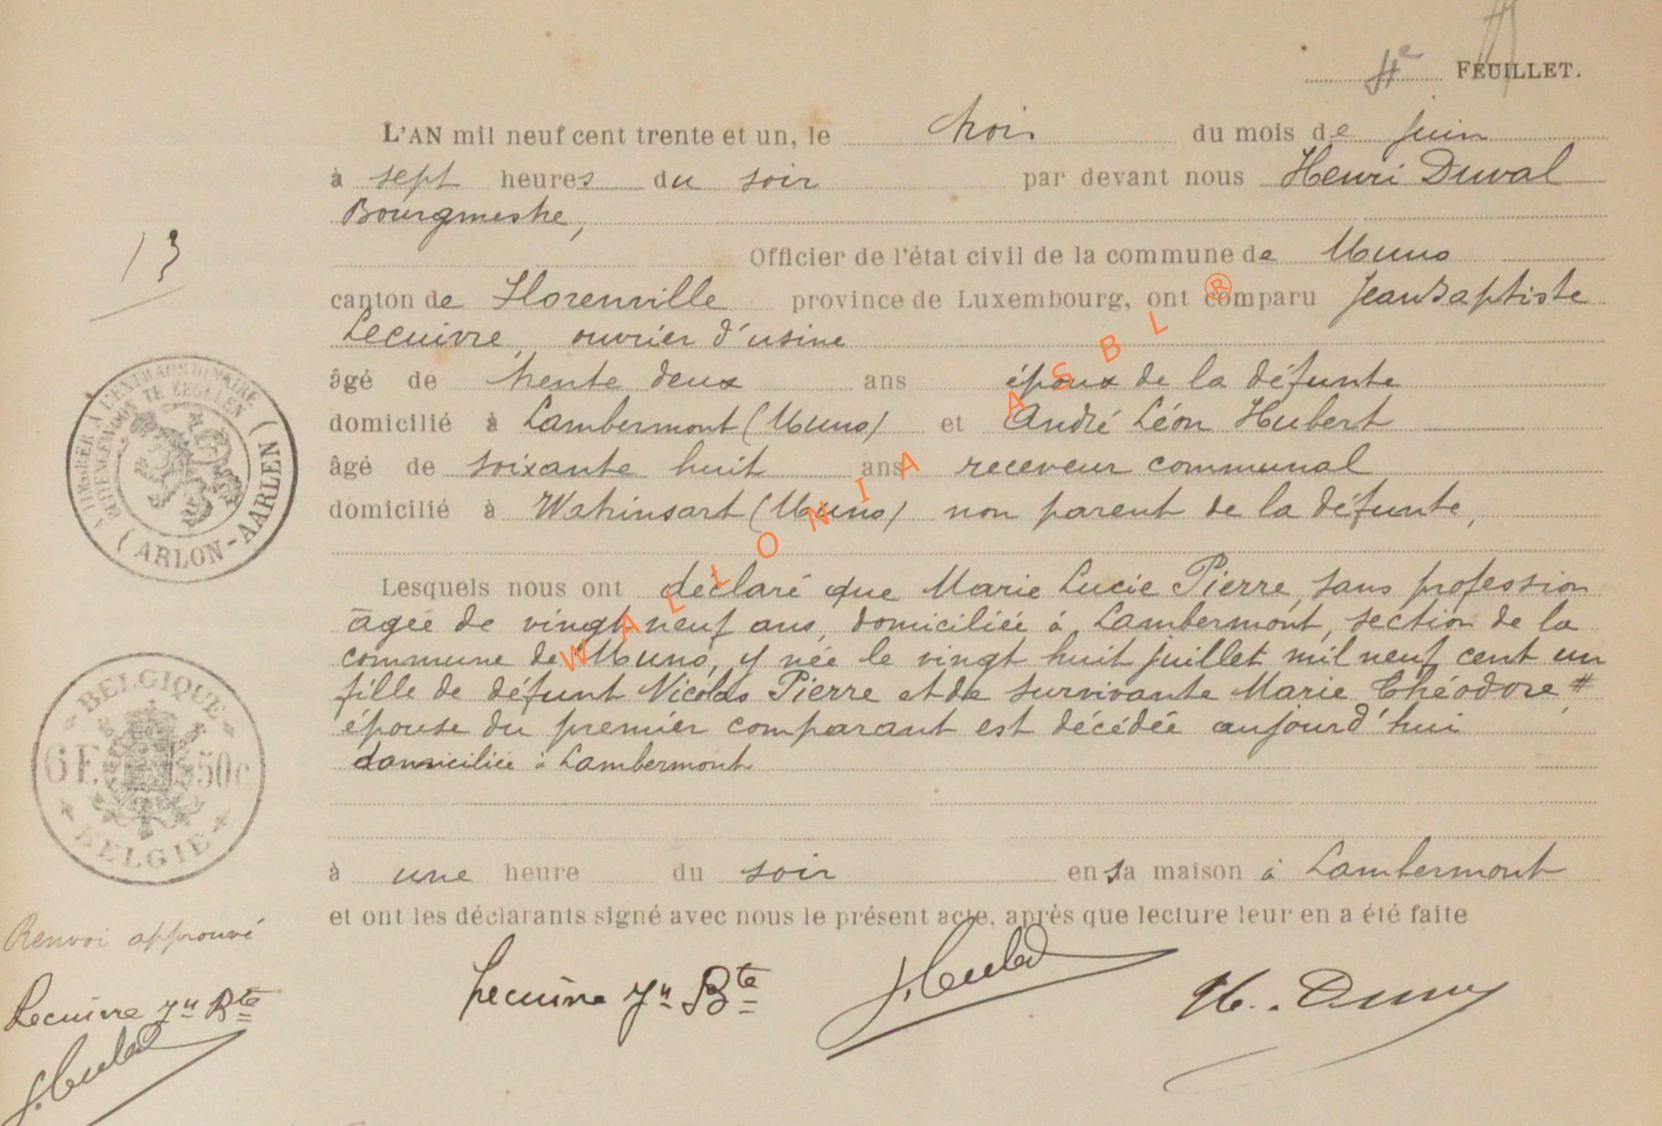 4e FEUILLET.
L'AN mil neuf cent trente et un, le trois du mois de juin
à sept heures du soir par devant nous Henri Duval
Bourgmestre,
13
Officier de l'état civil de la commune de Muno
canton de Florenville province de Luxembourg, ont comparu Jean Baptiste
Lecuivre, ouvrier d'usine
âgé de trente deux ans époux de la défunte
domicilié à Lambermont (Muno) et André Léon Hubert
âgé de soixante huit ans receveur communal
domicilié à Watrinsart (Muno) non parent de la défunte,
A TIMBRER A L'EXTRAORDINAIRE
BUITENGEWOON TE ZEGELEN
(ARLON-AARLEN)
Lesquels nous ont déclaré que Marie Lucie Pierre, sans profession
âgée de vingt neuf ans, domiciliée à Lambermont, section de la
commune de Muno, y née le vingt huit juillet mil neuf cent un
fille de défunt Nicolas Pierre et de survivante Marie Théodore, #
épouse du premier comparant est décédée aujourd'hui
domiciliée à Lambermont
BELGIQUE
6F. 50c
BELGIE
à une heure du soir en sa maison à Lambermont
et ont les déclarants signé avec nous le présent acte, après que lecture leur en a été faite
Renvoi approuvé
Lecuivre Jn Bte
Hubert
Lecuivre Jn Bte Hubert H. Duval
WALLONIA ASBL ®